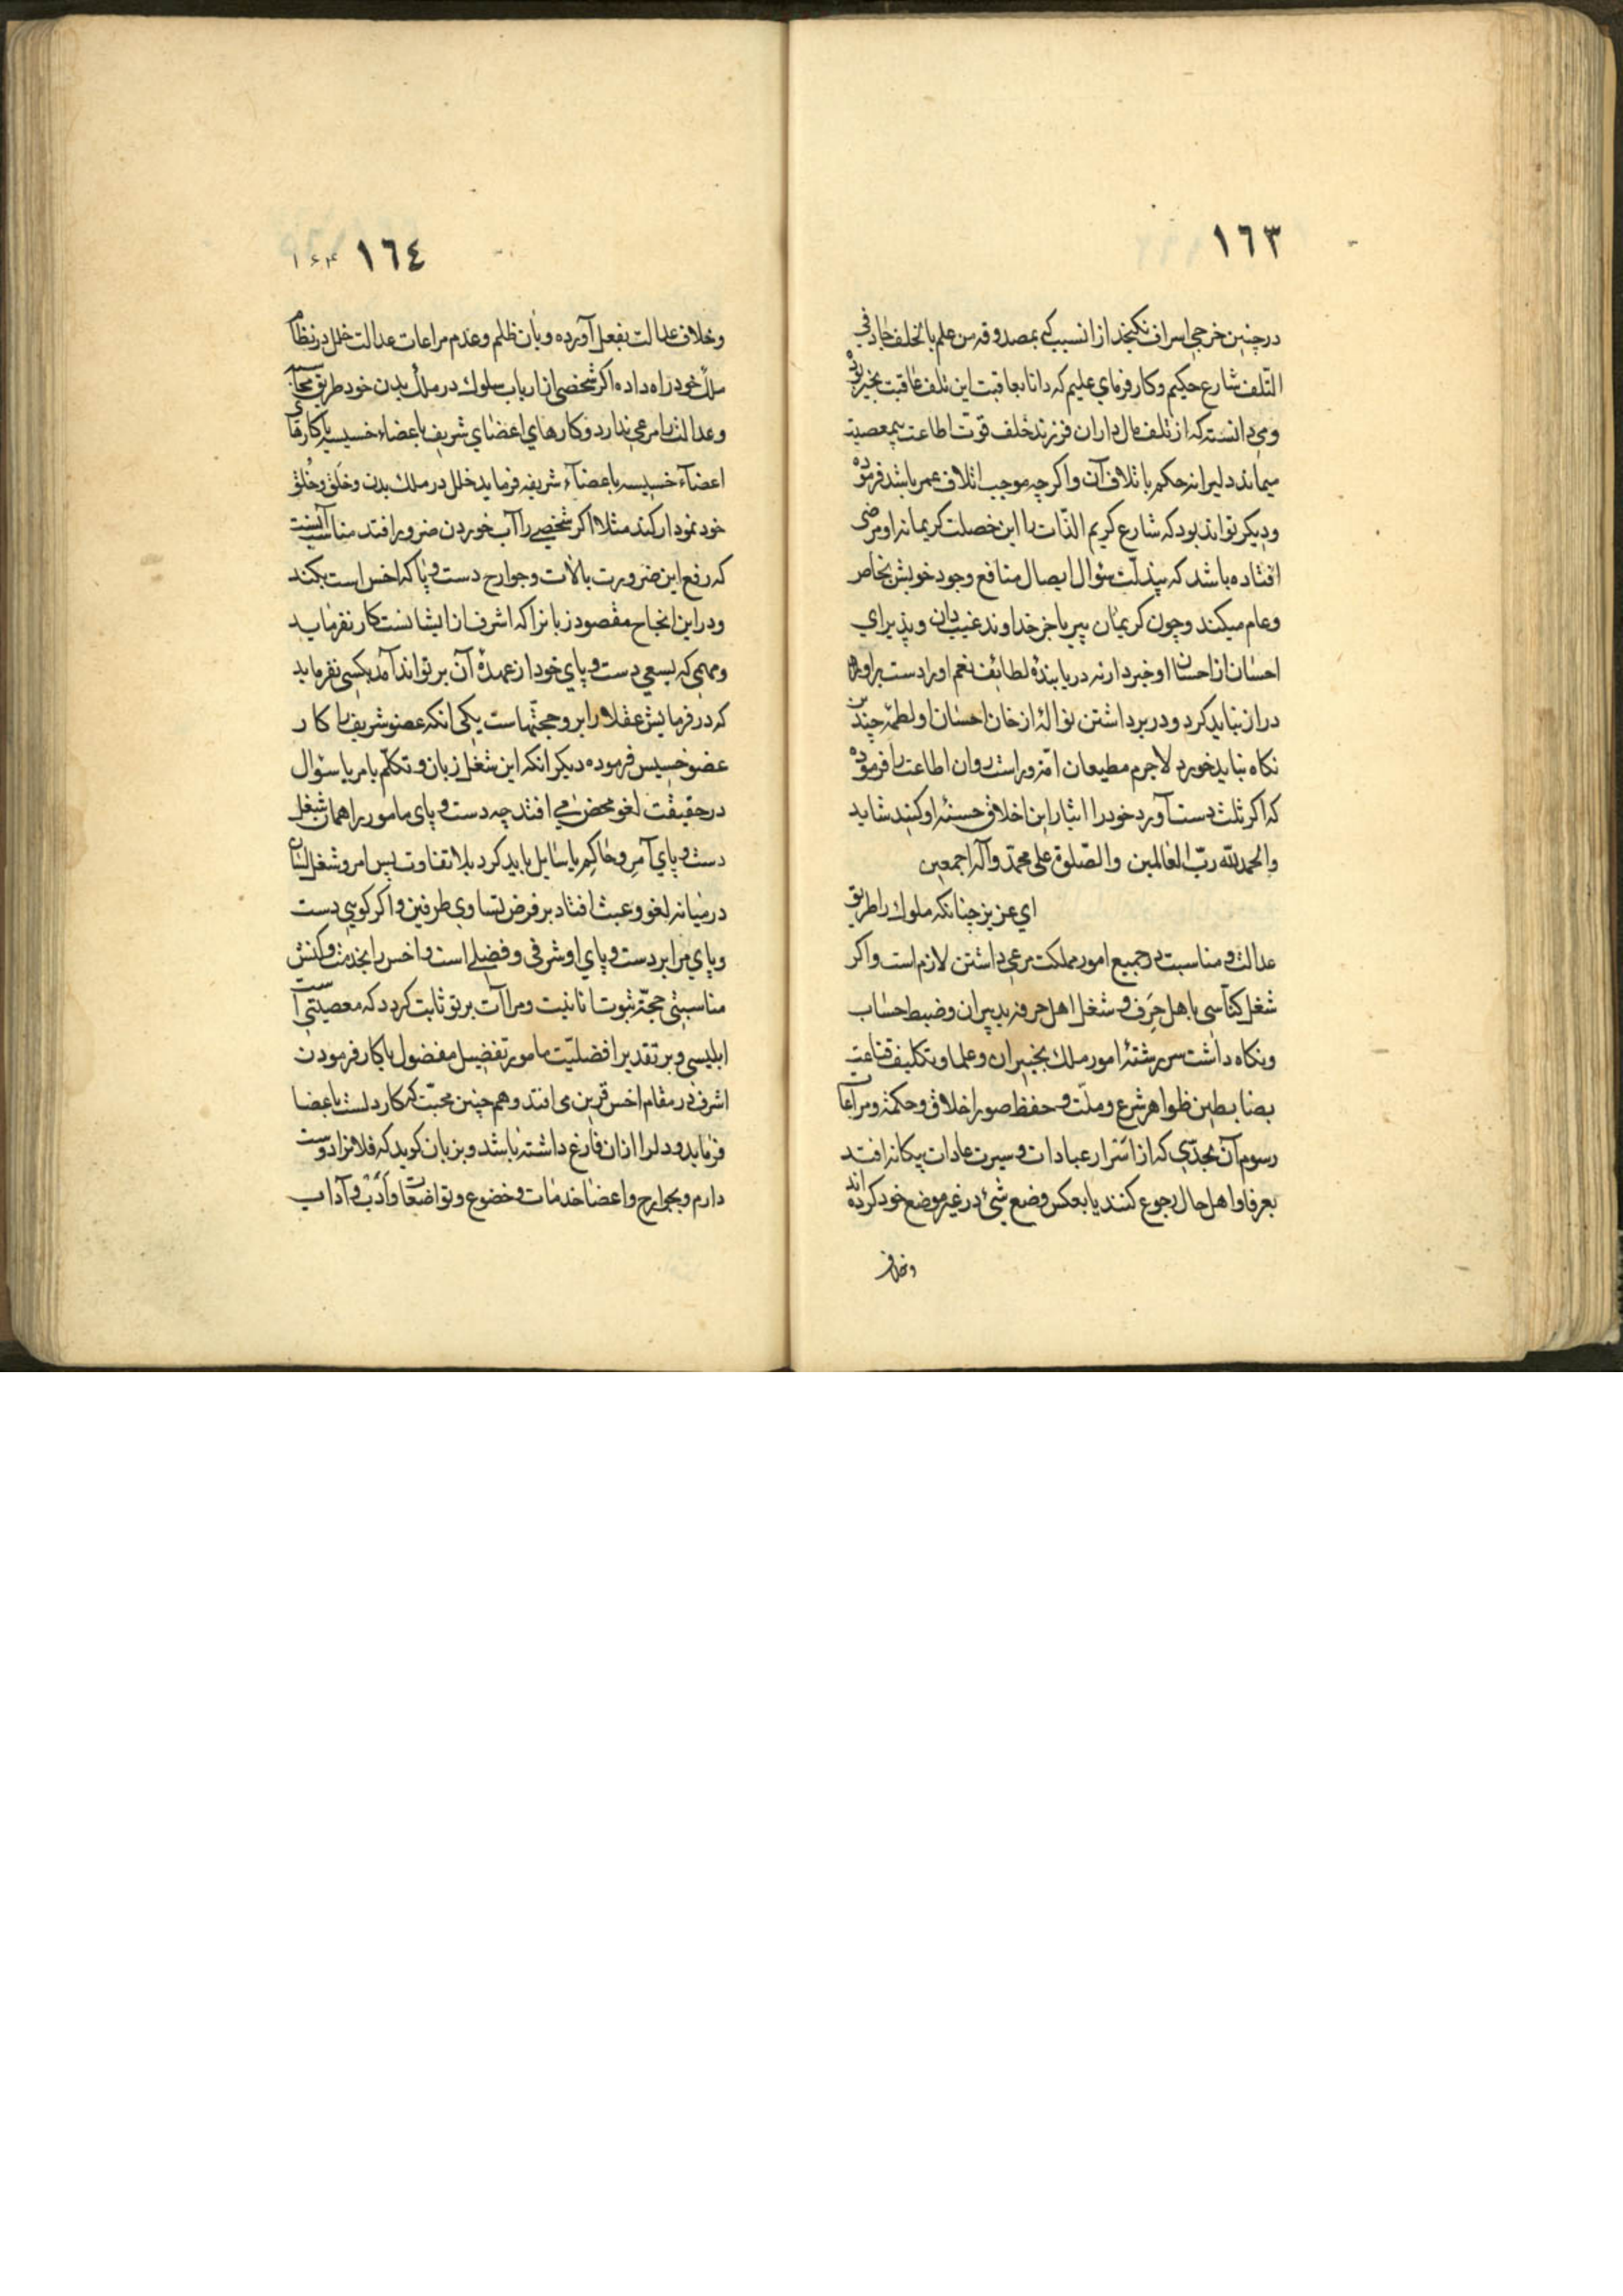 ١٦٣
در چنین خرجی اسراف نکنجد از انسبب که بمصدوقه من علم بالخلف جاد فی
التّلف شارع حکیم وکار فرمای علیم که دانا بعاقبت این تلف عاقبت بخیر بوده
ومی دانسته که از تلف مال داران فرزند خلف قوت اطاعت بیمعصیت
میماند دلیرانه حکم باتلاف آن واکرچه موجب اتلاف عمر باشد فرموده
ودیکر تواند بود که شارع کریم الذّات را این خصلت کریمانه او مرضی
افتاده باشد که بیذلّت سؤال ایصال منافع وجود خویش بخاص
وعام میکند وچون کریمان بیریا جز خداوند غیب دان وپذیرای
احسان از احسان او خبر دار نه دریابندهٔ لطائف نعم او را دست براو
دراز نباید کرد ودر برداشتن نوالهٔ از خان احسان او لطمهٔ چندین
نکاه نباید خورد لاجرم مطیعان را فرموده
که اکر ثلث دست آورد خود را ایثار این اخلاق حسنهٔ او کنند شاید
والحمد للّه ربّ العالمین والصّلوة علی محمّد وآله اجمعین
ای عزیز چنانکه ملوک را طریق
عدالت ومناسبت در جمیع امور مملکت مرعی داشتن لازم است واکر
شغل کنّاسی باهل حِرَف وشغل اهل حرفه بدبیران وضبط حساب
ونکاه داشت سررشتهٔ امور ملک بخبیران وعلما وتکلیف قناعت
بضابطین ظواهر شرع وملّت وحفظ صور اخلاق وحکمة ومراعات
رسوم آن بحدّی که از اسرار عبادات وسیرت عادات بیکانه افتد
بعرفا واهل حال رجوع کنند یا بعکس وضع شیٔ در غیر موضع خود کرده اند
وخلاف
١٦٤
۱۶۴
وخلاف عدالت بفعل آورده وبآن ظلم وعدم مراعات عدالت خلل در نظام
ملک خود راه داده اکر شخصی از ارباب سلوک در ملک بدن خود طریق
وعدالت را مرعی ندارد وکارهای اعضای شریف باعضاء خسیسه یا کارهای
اعضآء خسیسه باعضآء شریفه فرماید خلل در ملک بدن وخَلق وخُلق
خود نمودار کند مثلا اکر شخصی را آب خوردن ضرور افتد مناسب آنست
که رفع این ضرورت بآلات وجوارح دست وپا که اخس است بکند
ودر این انجاح مقصود زبانرا که اشرف از ایشانست کار نفرماید
ومهمی که بسعی دست وپای خود از عهدهٔ آن بر تواند آمد بکسی نفرماید
که در فرمایش عقلا را بر وجحتهاست یکی انکه عضو شریف را کار
عضو خسیس فرموده دیکر انکه این شغل زبان وتکلّم بامر یا سؤال
در حقیقت لغو محض می افتد چه دست وپای مامور را همان شغل
دست وپای آمر وحاکم یا سایل باید کرد بلا تفاوت پس امر وشغل لسان
در میانه لغو وعبث افتاد بر فرض تساوی طرفین واکر کویی دست
وپای مرا بر دست وپای او شرفی وفضلی است واخس را بخدمت وکنش
مناسبتی حجّة ثبوت انانیت ومراآت بر تو ثابت کردد که معصیتی است
ابلیسی وبر تقدیر افضلیّت مامور تفضیل مفضول یا کار فرمودن
اشرف در مقام اخس قرین می افتد وهم چنین محبّت که کار دلست باعضا
فرماید ودلرا ازان فارغ داشته باشد وبزبان کوید که فلانرا دوست
دارم وبجوارح واعضا خدمات وخضوع وتواضعات وأَدَب وآداب